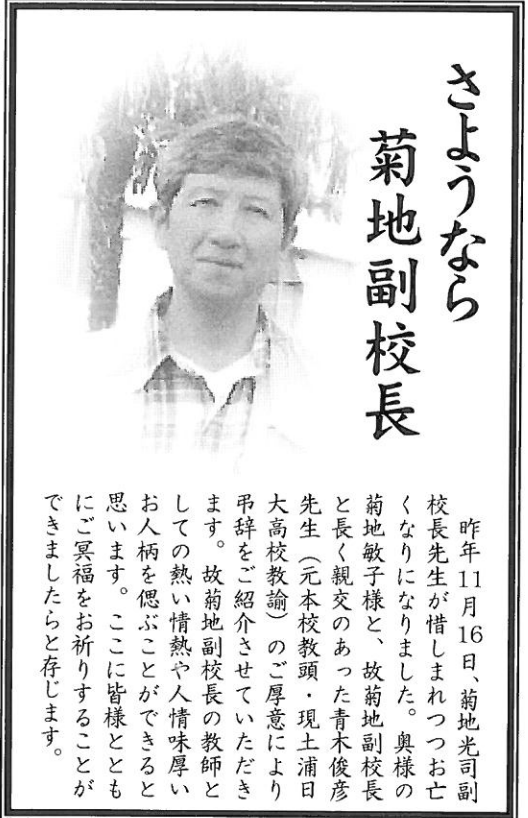 さようなら
菊地副校長
昨年11月16日、菊地光司副
校長先生が惜しまれつつお亡
くなりになりました。奥様の
菊地敏子様と、故菊地副校長
と長く親交のあった青木俊彦
先生（元本校教頭・現土浦日
大高校教諭）のご厚意により
弔辞をご紹介させていただき
ます。故菊地副校長の教師と
しての熱い情熱や人情味厚い
お人柄を偲ぶことができると
思います。ここに皆様ととも
にご冥福をお祈りすることが
できましたらと存じます。